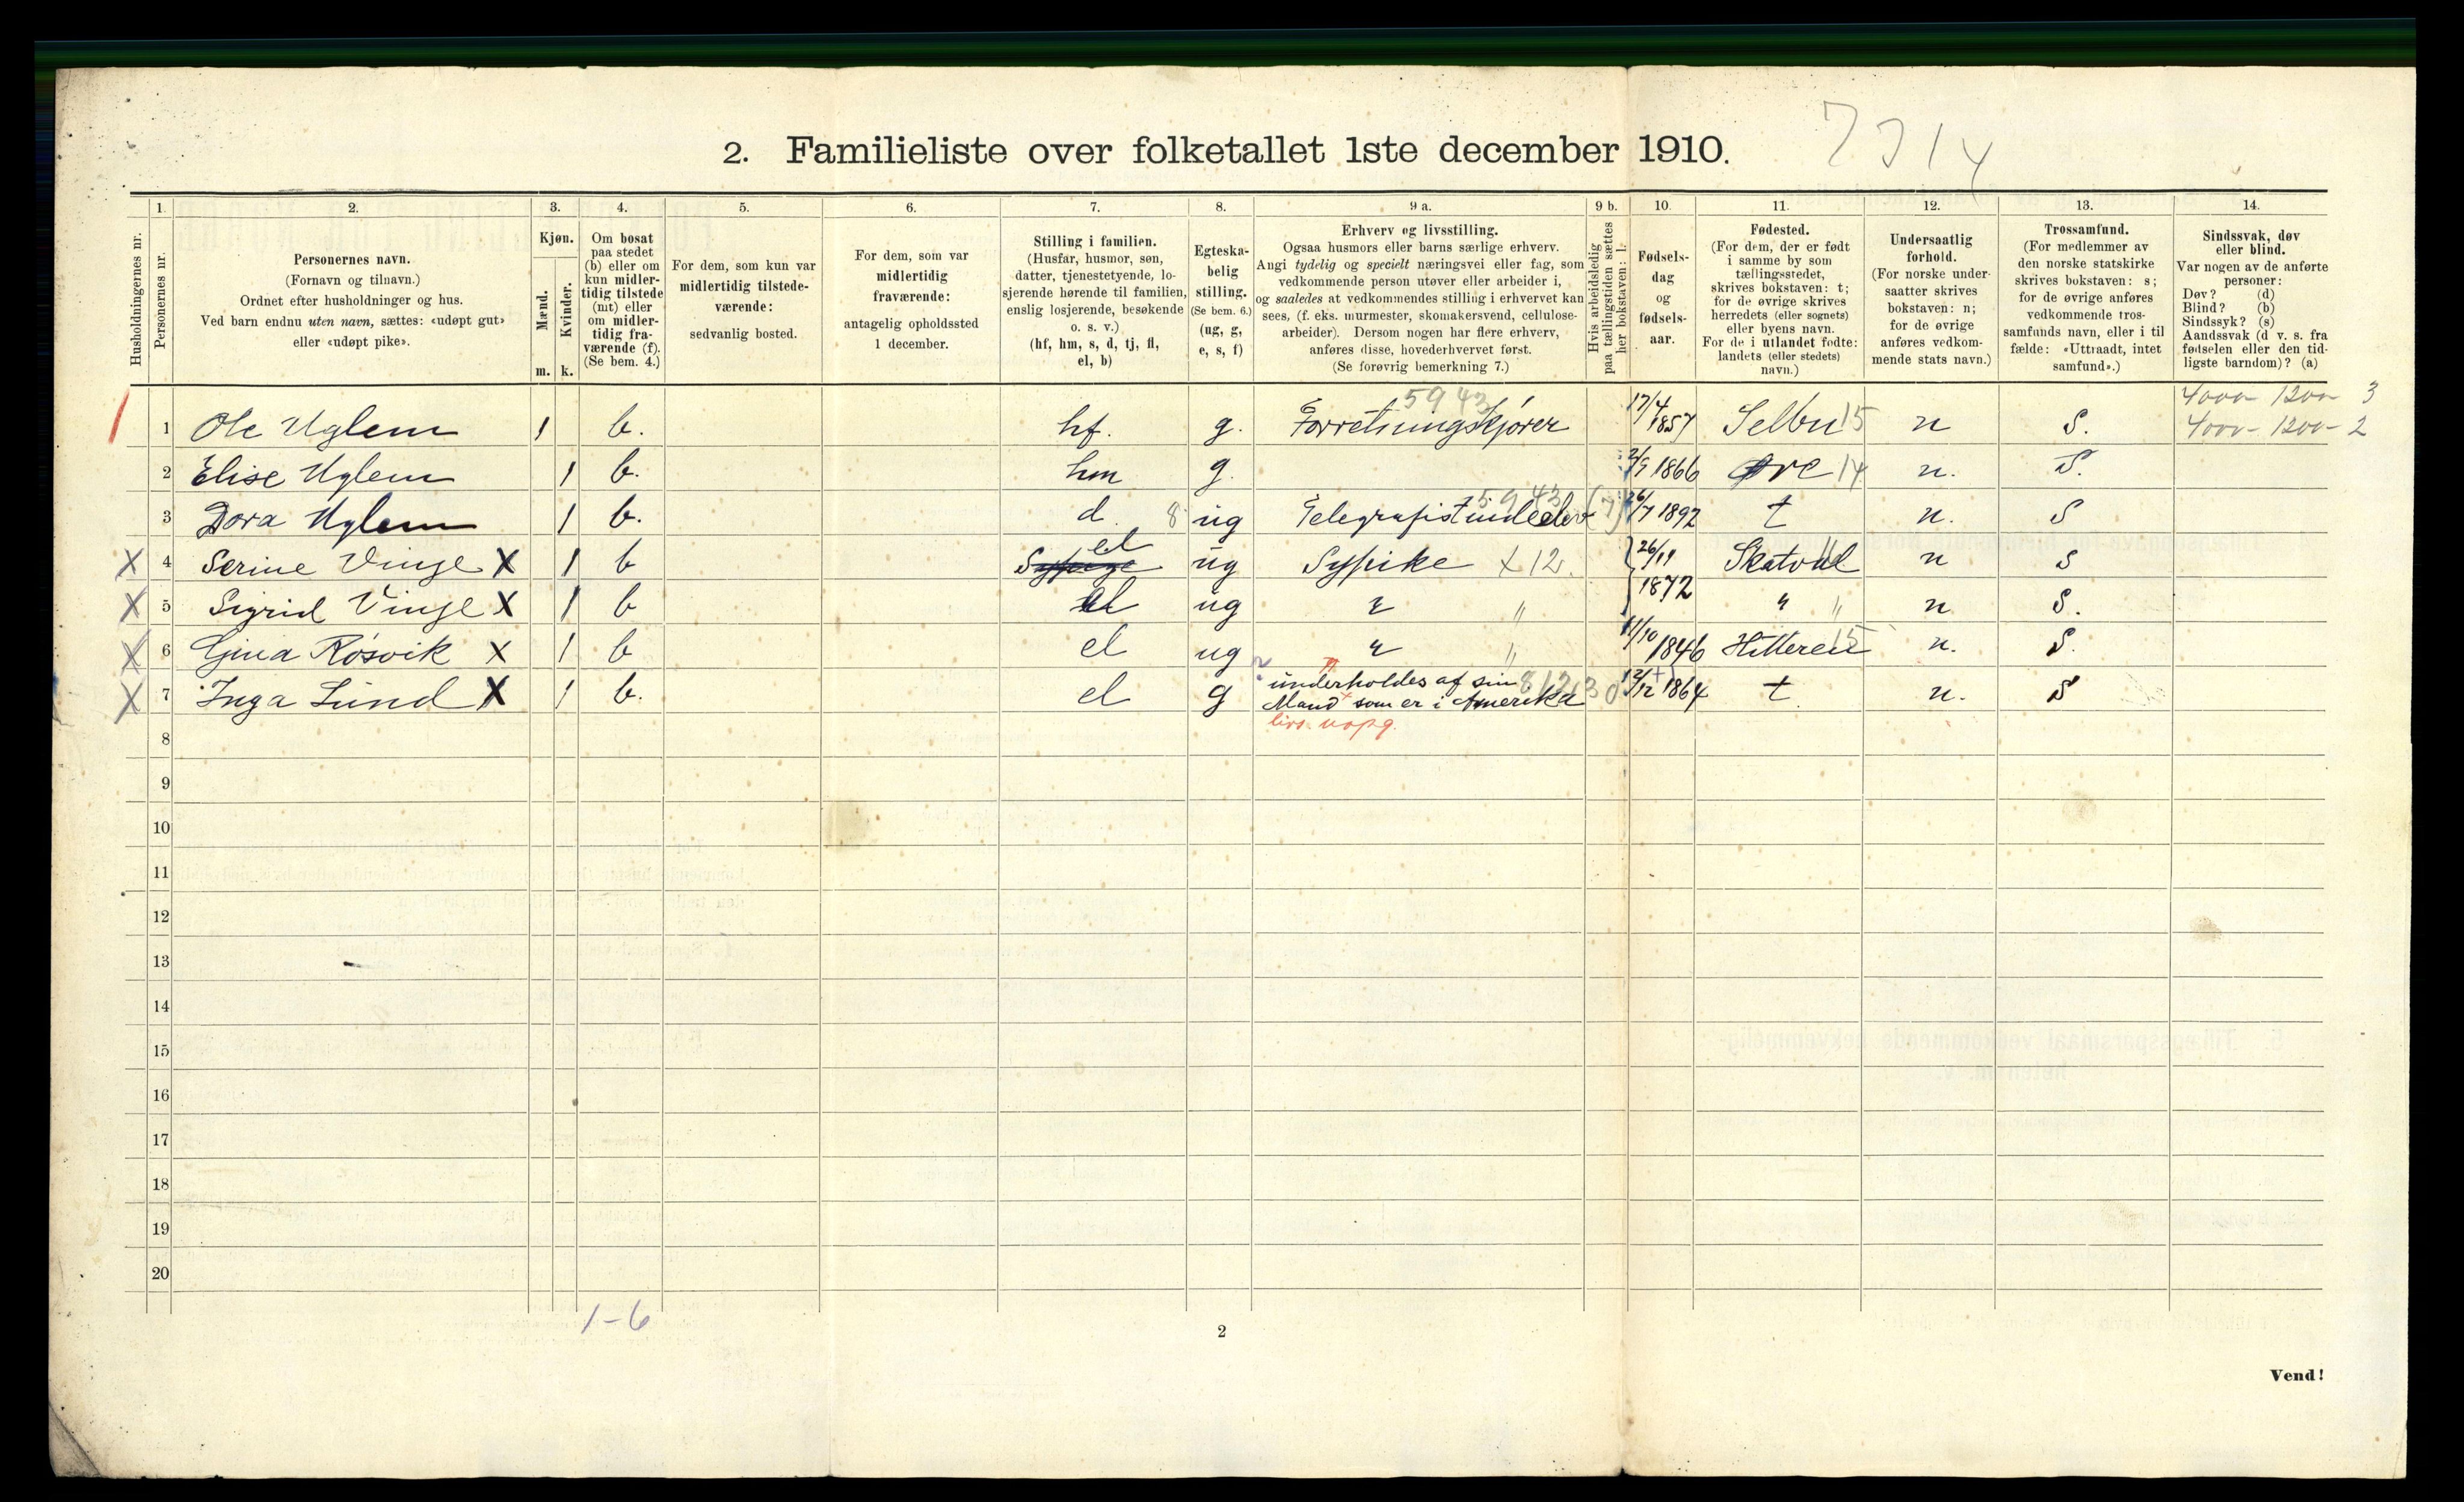 2. Familieliste over folketallet 1ste december 1910.
7714
Husholdningernes nr.
1. Personernes nr.
2. Personernes navn. (Fornavn og tilnavn.) Ordnet efter husholdninger og hus. Ved barn endnu uten navn, sættes: «udøpt gut» eller «udøpt pike».
3. Kjøn. Mænd. m. Kvinder. k.
4. Om bosat paa stedet (b) eller om kun midlertidig tilstede (mt) eller om midlertidig fraværende (f). (Se bem. 4.)
5. For dem, som kun var midlertidig tilstedeværende: sedvanlig bosted.
6. For dem, som var midlertidig fraværende: antagelig opholdssted 1 december.
7. Stilling i familien. (Husfar, husmor, søn, datter, tjenestetyende, losjerende hørende til familien, enslig losjerende, besøkende o. s. v.) (hf, hm, s, d, tj, fl, el, b)
8. Egteskabelig stilling. (Se bem. 6.) (ug, g, e, s, f)
9 a. Erhverv og livsstilling. Ogsaa husmors eller barns særlige erhverv. Angi tydelig og specielt næringsvei eller fag, som vedkommende person utøver eller arbeider i, og saaledes at vedkommendes stilling i erhvervet kan sees, (f. eks. murmester, skomakersvend, cellulosearbeider). Dersom nogen har flere erhverv, anføres disse, hovederhvervet først. (Se forøvrig bemerkning 7.)
9 b. Hvis arbeidsledig paa tællingstiden sættes her bokstaven: l.
10. Fødselsdag og fødselsaar.
11. Fødested. (For dem, der er født i samme by som tællingsstedet, skrives bokstaven: t; for de øvrige skrives herredets (eller sognets) eller byens navn. For de i utlandet fødte: landets (eller stedets) navn.)
12. Undersaatlig forhold. (For norske undersaatter skrives bokstaven: n; for de øvrige anføres vedkommende stats navn.)
13. Trossamfund. (For medlemmer av den norske statskirke skrives bokstaven: s; for de øvrige anføres vedkommende trossamfunds navn, eller i tilfælde: «Uttraadt, intet samfund».)
14. Sindssvak, døv eller blind. Var nogen av de anførte personer: Døv? (d) Blind? (b) Sindssyk? (s) Aandssvak (d v. s. fra fødselen eller den tidligste barndom)? (a)
5943 4000- 1200- 3
1 Ole Uglem 1 b. hf. g. Forretningskjører 17/4 1857 Selbu 15 n S. 4000- 1200- 2
2 Elise Uglem 1 b. hm g. 2/5 1866 Øre 14 n. S.
5943
3 Dora Uglem 1 b. d. 8 ug Telegrafistindeelev 26/7 1892 t n. S
X 4 Serine Vinge X 1 b el ug Sypike X 12. 26/11 1872 Skatval 11 n s
X 5 Sigrid Vinge X 1 b el ug " " " " n S.
X 6 Gina Røsvik X 1 b el ug " " 11/10 1846 Hitteren 15 n. S.
X 7 Inga Lund X 1 b. el g underholdes af sin Mand som er i Amerika 12/12 1864 t. n. S
livs. uopg.
8
9
10
11
12
13
14
15
16
17
18
19
20
1-6
2
Vend!